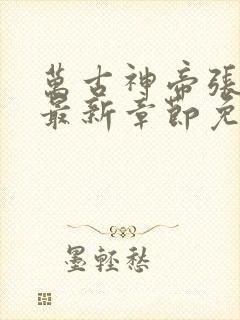 萬古神帝張
最新章節免
墨輕愁